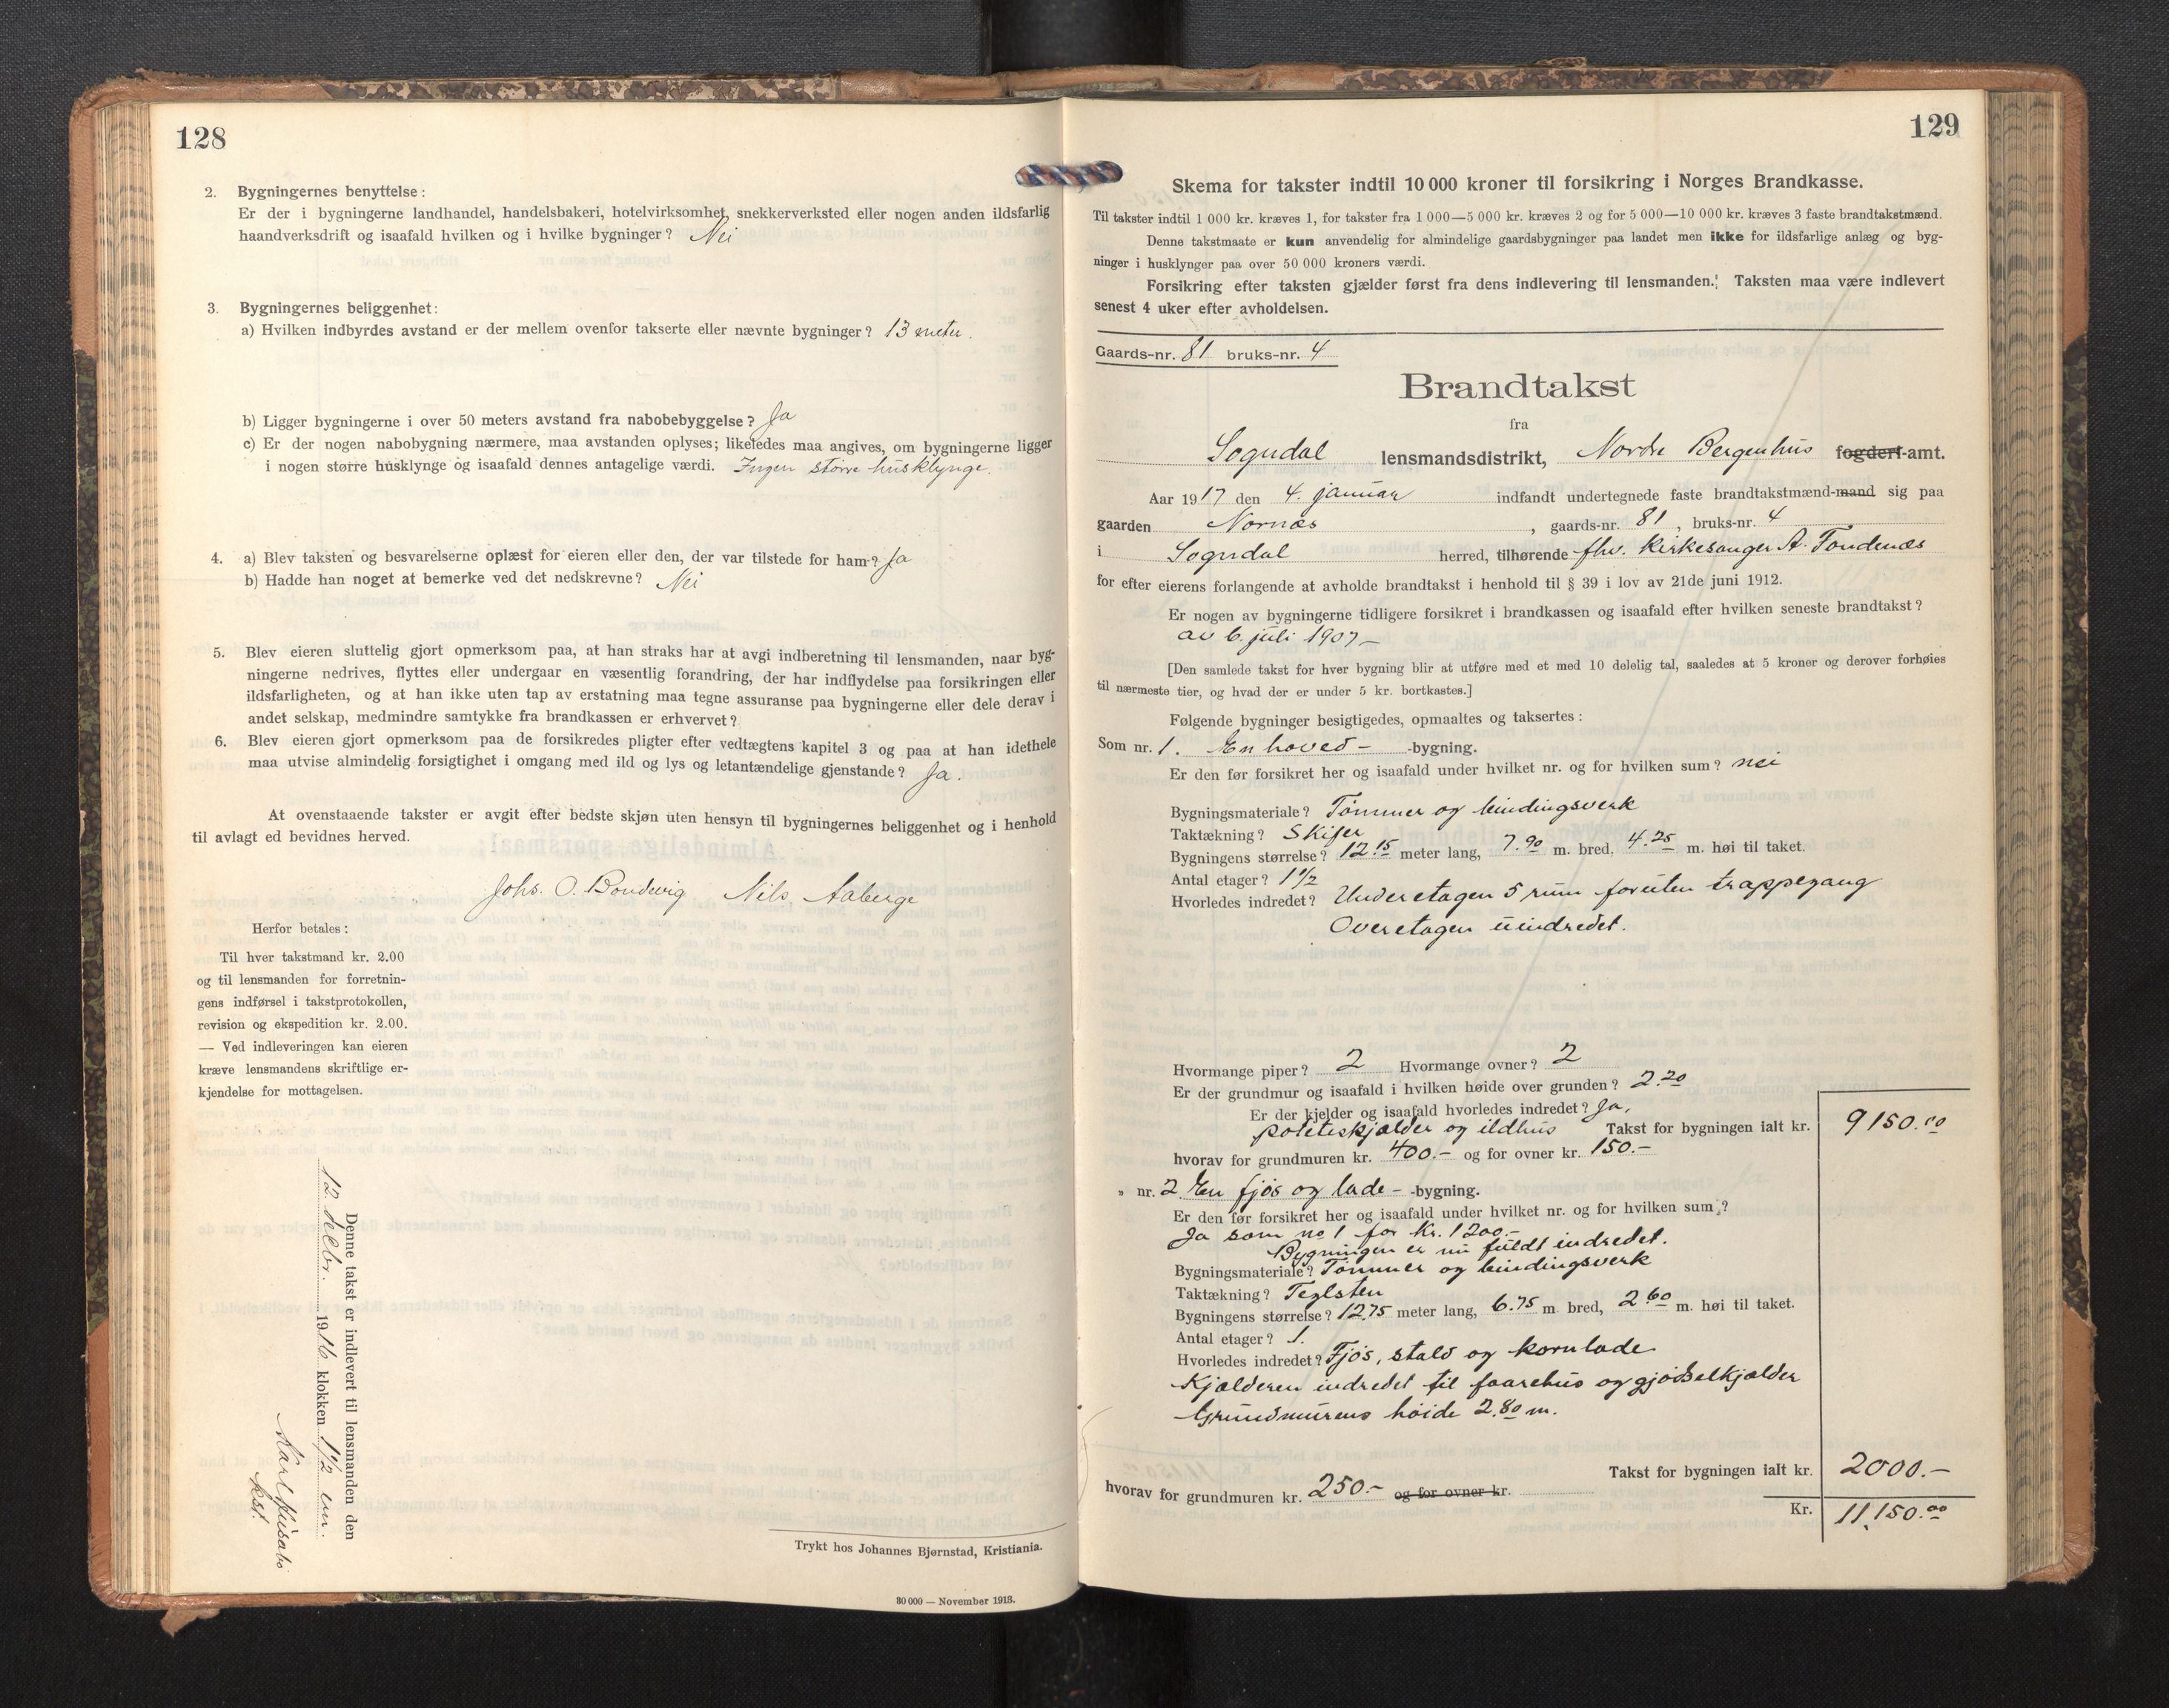 128
2. Bygningernes benyttelse:
Er der i bygningerne landhandel, handelsbakeri, hotelvirksomhet, snekkerverksted eller nogen anden ildsfarlig
haandverksdrift og isaafald hvilken og i hvilke bygninger? Nei
3. Bygningernes beliggenhet:
a) Hvilken indbyrdes avstand er der mellem ovenfor takserte eller nævnte bygninger? 13 meter.
b) Ligger bygningerne i over 50 meters avstand fra nabobebyggelse? Ja
c) Er der nogen nabobygning nærmere, maa avstanden oplyses; likeledes maa angives, om bygningerne ligger
i nogen større husklynge og isaafald dennes antagelige værdi. Ingen större husklynge.
4. a) Blev taksten og besvarelserne oplæst for eieren eller den, der var tilstede for ham? Ja
b) Hadde han noget at bemerke ved det nedskrevne? Nei
5. Blev eieren sluttelig gjort opmerksom paa, at han straks har at avgi indberetning til lensmanden, naar byg-
ningerne nedrives, flyttes eller undergaar en væsentlig forandring, der har indflydelse paa forsikringen eller
ildsfarligheten, og at han ikke uten tap av erstatning maa tegne assuranse paa bygningerne eller dele derav i
andet selskap, medmindre samtykke fra brandkassen er erhvervet?
6. Blev eieren gjort opmerksom paa de forsikredes pligter efter vedtægtens kapitel 3 og paa at han idethele
maa utvise almindelig forsigtighet i omgang med ild og lys og letantændelige gjenstande? Ja.
At ovenstaaende takster er avgit efter bedste skjøn uten hensyn til bygningernes beliggenhet og i henhold
til avlagt ed bevidnes herved.
Johs. O. Bondevig Nils Aaberge
Herfor betales:
Til hver takstmand kr. 2.00
og til lensmanden for forretnin-
gens indførsel i takstprotokollen,
revision og ekspedition kr. 2.00.
— Ved indleveringen kan eieren
kræve lensmandens skriftlige er-
kjendelse for mottagelsen.
Denne takst er indlevert til lensmanden den
12 delbr. 1916 klokken 1 1/2 em.
Karl
kst.
Trykt hos Johannes Bjørnstad, Kristiania.
30 000 — November 1913.
129
Skema for takster indtil 10 000 kroner til forsikring i Norges Brandkasse.
Til takster indtil 1 000 kr. kræves 1, for takster fra 1 000—5 000 kr. kræves 2 og for 5 000—10 000 kr. kræves 3 faste brandtakstmænd.
Denne takstmaate er kun anvendelig for almindelige gaardsbygninger paa landet men ikke for ildsfarlige anlæg og byg-
ninger i husklynger paa over 50 000 kroners værdi.
Forsikring efter taksten gjælder først fra dens indlevering til lensmanden. Taksten maa være indlevert
senest 4 uker efter avholdelsen.
Gaards-nr. 81 bruks-nr. 4
Brandtakst
fra
Sogndal lensmandsdistrikt, Nordre Bergenhus fogderi-amt.
Aar 1917 den 4. januar indfandt undertegnede faste brandtakstmænd-mand sig paa
gaarden Nornæs, gaards-nr. 81, bruks-nr. 4
i Sogndal herred, tilhørende fhv. Kirkesanger A. Tondenæs
for efter eierens forlangende at avholde brandtakst i henhold til § 39 i lov av 21de juni 1912.
Er nogen av bygningerne tidligere forsikret i brandkassen og isaafald efter hvilken seneste brandtakst?
av 6. juli 1907 —
[Den samlede takst for hver bygning blir at utføre med et med 10 delelig tal, saaledes at 5 kroner og derover forhøies
til nærmeste tier, og hvad der er under 5 kr. bortkastes.]
Følgende bygninger besigtigedes, opmaaltes og taksertes:
Som nr. 1. En hoved- -bygning.
Er den før forsikret her og isaafald under hvilket nr. og for hvilken sum? nei
Bygningsmateriale? Tömmer og bindingsverk
Taktækning? Skifer
Bygningens størrelse? 12.15 meter lang, 7.90 m. bred, 4.25 m. høi til taket.
Antal etager? 1 1/2
Hvorledes indredet? Underetagen 5 rum foruten trappegang
Overetagen uindredet.
Hvormange piper? 2 Hvormange ovner? 2
Er der grundmur og isaafald i hvilken høide over grunden? 2.20
Er der kjelder og isaafald hvorledes indredet? Ja,
poteteskjælder og ildhus Takst for bygningen ialt kr. 9150.00
hvorav for grundmuren kr. 400.- og for ovner kr. 150.-
" nr. 2. En fjös og lade- -bygning.
Er den før forsikret her og isaafald under hvilket nr. og for hvilken sum?
Ja som no 1 for Kr. 1200.-
Bygningen er nu fuldt indredet.
Bygningsmateriale? Tömmer og bindingsverk
Taktækning? Teglsten
Bygningens størrelse? 12.75 meter lang, 6.75 m. bred, 2.60 m. høi til taket.
Antal etager? 1.
Hvorledes indredet? Fjös, stald og kornlade
Kjælderen indredet til faarehus og gjödselkjælder
Grundmurens höide 2.80 m.
Takst for bygningen ialt kr. 2000.-
hvorav for grundmuren kr. 250.- og for ovner kr.
Kr. 11,150.00